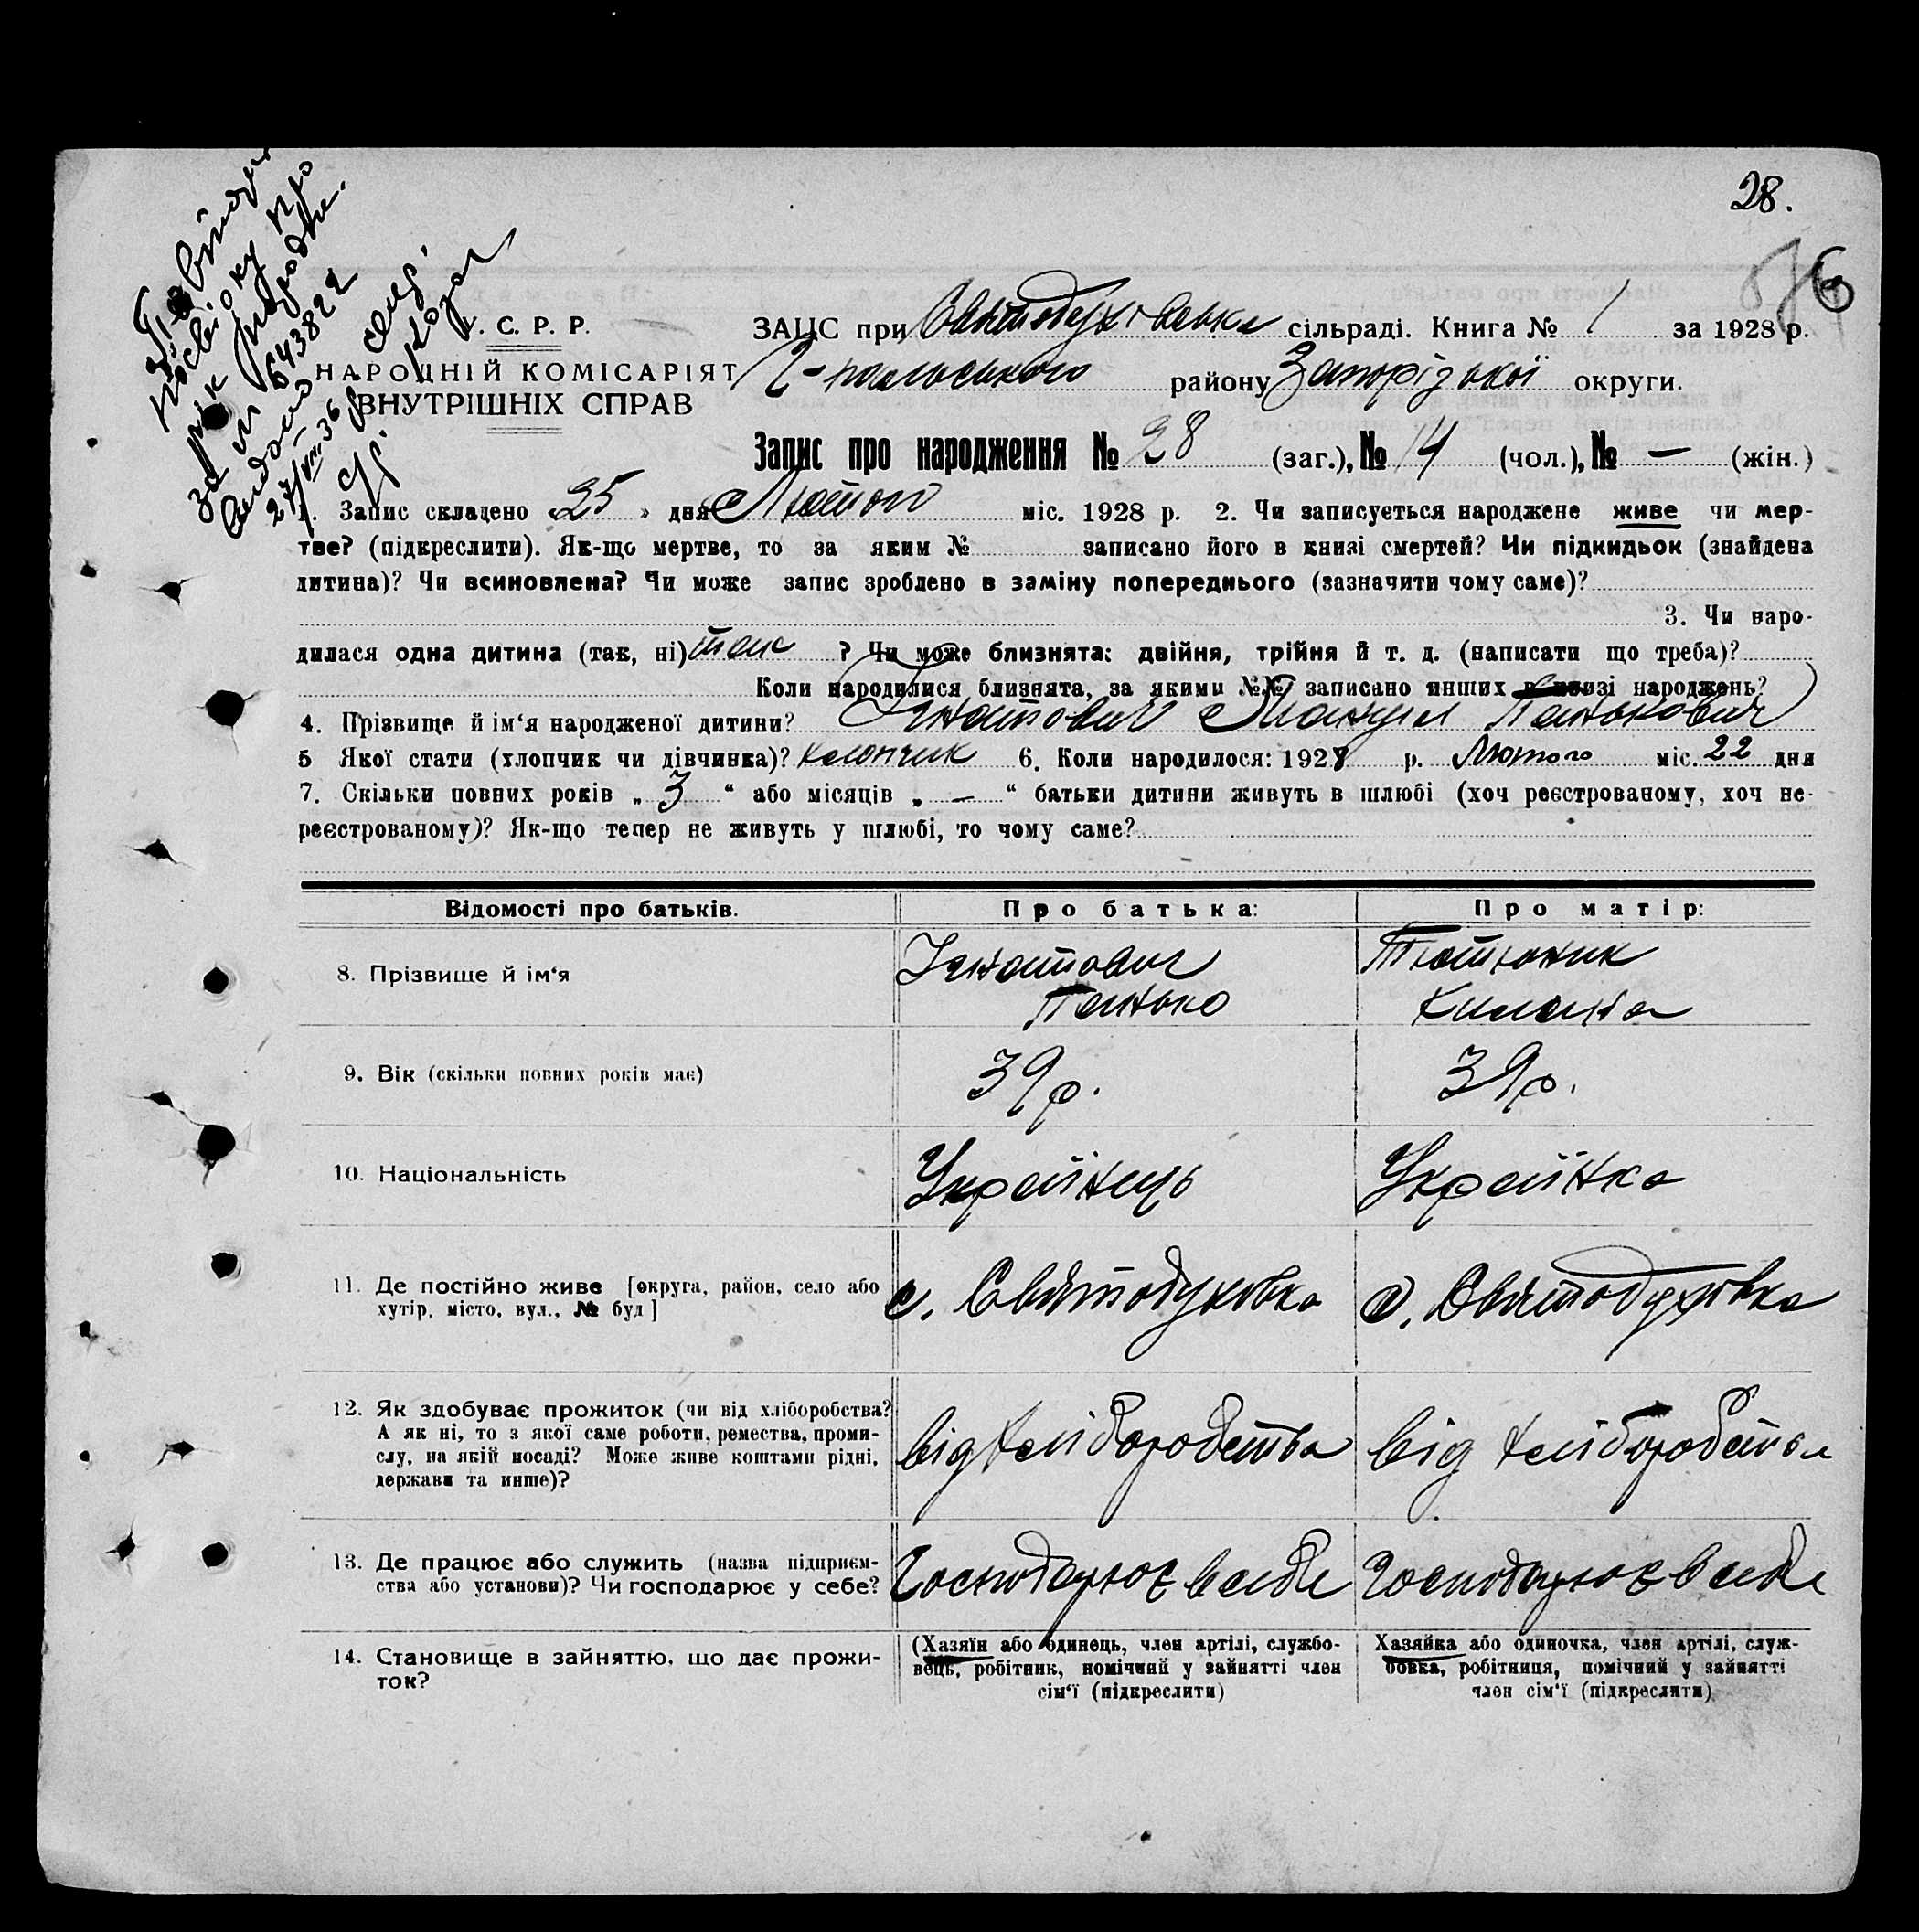 28.
6
У. С. Р. Р.
НАРОДНІЙ КОМІСАРІЯТ
ВНУТРІШНІХ СПРАВ
ЗАЦС при Святодухівське сільраді. Книга № 1 за 1928 р.
району Запорізької округи.
Запис про народження № 28 (заг.), № 14 (чол.), № — (жін.)
1. Запис складено «25» дня Лютого міс. 1928 р. 2. Чи записується народжене живе чи мер-
тве? (підкреслити). Як-що мертве, то за яким № записано його в книзі смертей? Чи підкидьок (знайдена
дитина)? Чи всиновлена? Чи може запис зроблено в заміну попереднього (зазначити чому саме)?
3. Чи наро-
дилася одна дитина (так, ні) так ? Чи може близнята: двійня, трійня й т. д. (написати що треба)?
Коли народилися близнята, за якими №№ записано инших в книзі народжень?
4. Прізвище й ім'я народженої дитини? Ігнатович Панькович
5 Якої стати (хлопчик чи дівчинка)? хлопчик 6. Коли народилося: 1928 р. Лютого міс. 22 дня
7. Скільки повних років „ 3 “ або місяців „ — “ батьки дитини живуть в шлюбі (хоч реєстрованому, хоч не-
реєстрованому)? Як-що тепер не живуть у шлюбі, то чому саме?
Відомості про батьків. Про батька: Про матір:
8. Прізвище й ім'я Ігнатович Панько Тютюник Килина
9. Вік (скільки повних років має) 39 р. 39 р.
10. Національність Українець Українка
11. Де постійно живе [округа, район, село або
хутір, місто, вул., № буд] с. Святодуховка с. Святодуховка
12. Як здобуває прожиток (чи від хліборобства?
А як ні, то з якої саме роботи, ремества, проми-
слу, на якій посаді? Може живе коштами рідні,
держави та инше)? від хліборобства від хліборобства
13. Де працює або служить (назва підприєм-
ства або установи)? Чи господарює у себе? Господарює в себе Господарює в себе
14. Становище в зайняттю, що дає прожи-
ток?
(Хазяїн або одинець, член артілі, службо-
вець, робітник, помічний у зайнятті член
сім'ї (підкреслити)
Хазяйка або одиночка, член артілі, служ-
бовка, робітниця, помічний у зайнятті
член сім'ї (підкреслити)